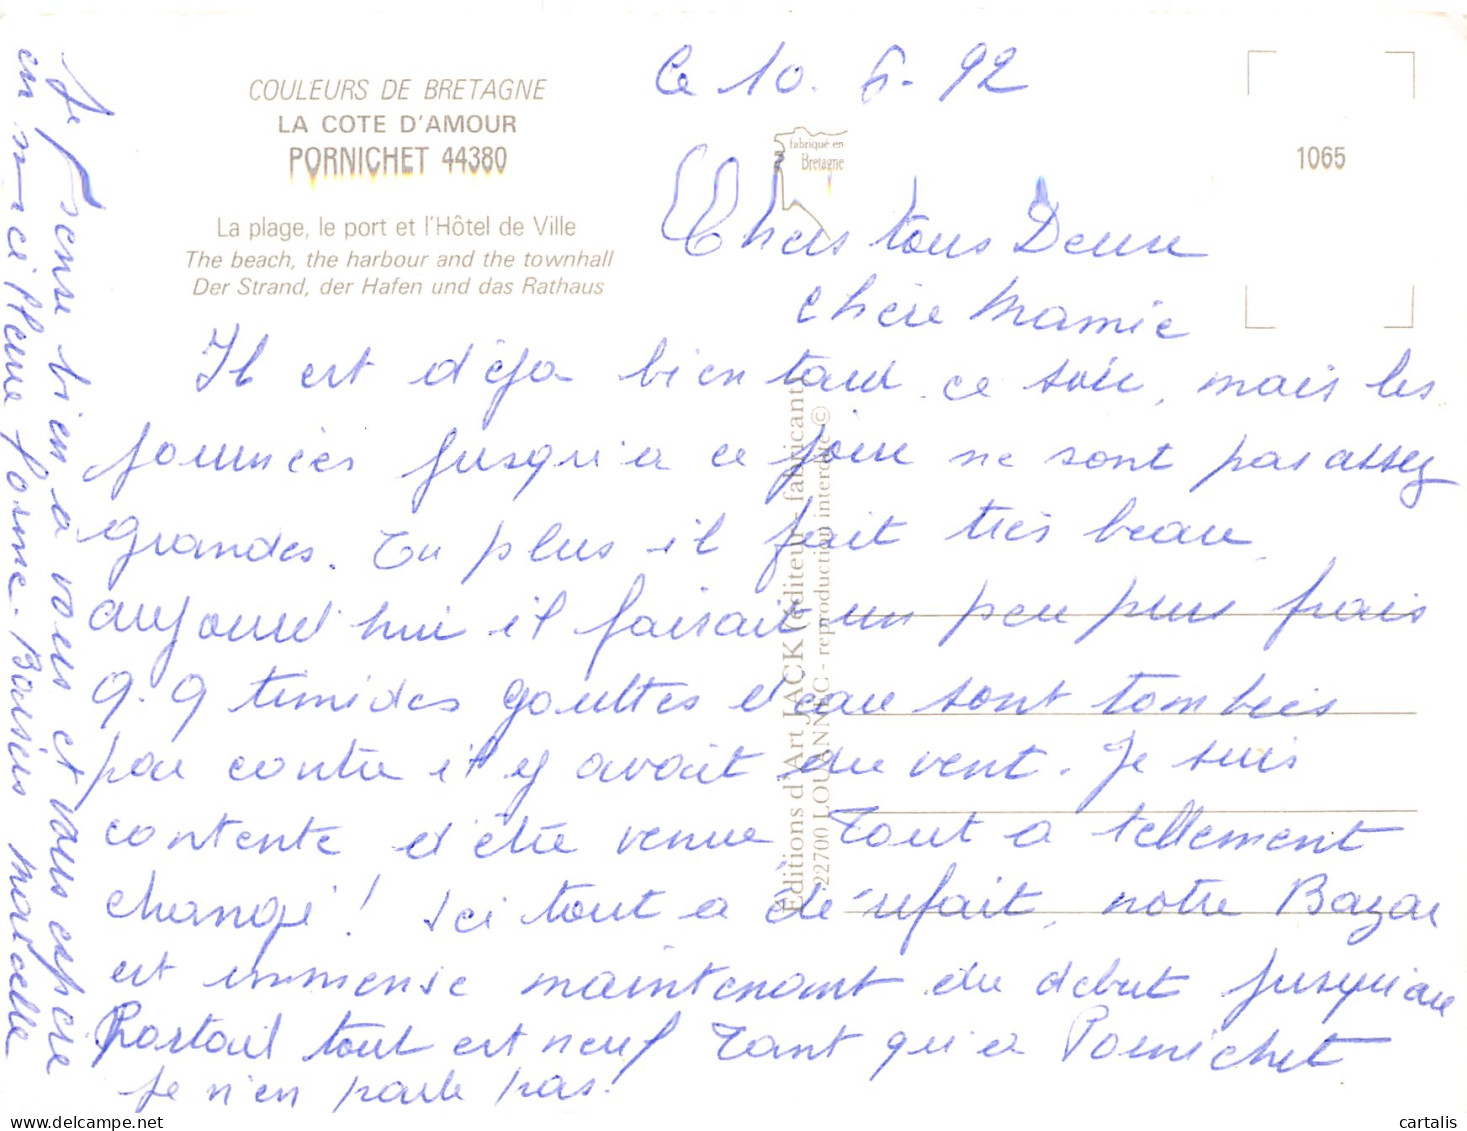 COULEURS DE BRETAGNE
LA COTE D'AMOUR
PORNICHET 44380
La plage, le port et l'Hôtel de Ville
The beach, the harbour and the townhall
Der Strand, der Hafen und das Rathaus
fabriqué en
Bretagne
1065
Editions d'Art JACK (éditeur - fabricant)
22700 LOUANNEC - reproduction interdite ©
Le 10. 6. 92
Chers tous Deux
chère Mamie
Il est déja bien tard ce soir, mais les
journées jusqu'à ce jour ne sont pas assez
grandes. En plus il fait très beau
aujourd'hui il faisait un peu plus frais
q.q timides gouttes d'eau sont tombées
par contre il y avait du vent. Je suis
contente d'être venue, Tout a tellement
changé! Ici tout a été refait, notre Bazar
est immense maintenant du debut jusqu'au
Portail tout est neuf Tant qu'a Pornichet
je n'en parle pas.
Je pense bien a vous et vous espère
en meilleure forme. Baisers Marcelle
cartalis